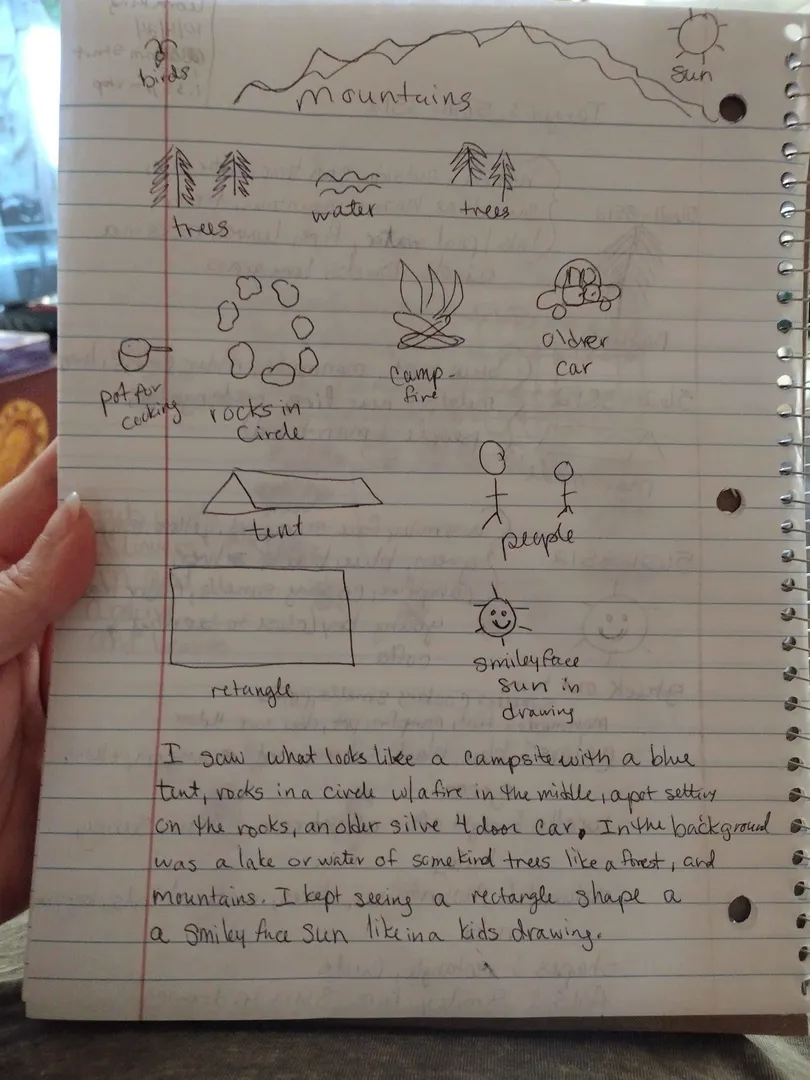 birds
sun
mountains
trees
water
trees
oldrer
car
camp-
fire
pot for
cooking
rocks in
circle
tent
people
smiley face
sun in
drawing
retangle
I saw what looks like a campsite with a blue
tent, rocks in a circle w/a fire in the middle, a pot setting
on the rocks, an older silve 4 door car. In the background
was a lake or water of some kind trees like a forest, and
mountains. I kept seeing a rectangle shape a
a smiley face sun like in a kids drawing.